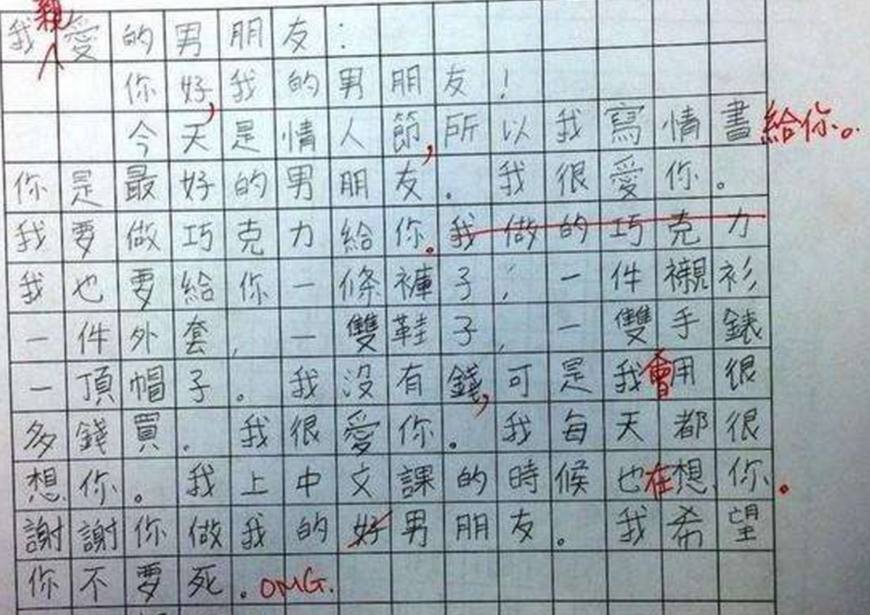 我親愛的男朋友：
你好，我的男朋友！
今天是情人節，所以我寫情書給你。
你是最好的男朋友。我很愛你。
我要做巧克力給你。我做的巧克力
我也要給你一條褲子，一件襯衫
一件外套，一雙鞋子，一雙手錶
一頂帽子。我沒有錢，可是我會用很
多錢買。我很愛你。我每天都很
想你。我上中文課的時候也在想你。
謝謝你做我的好男朋友。我希望
你不要死。OMG.